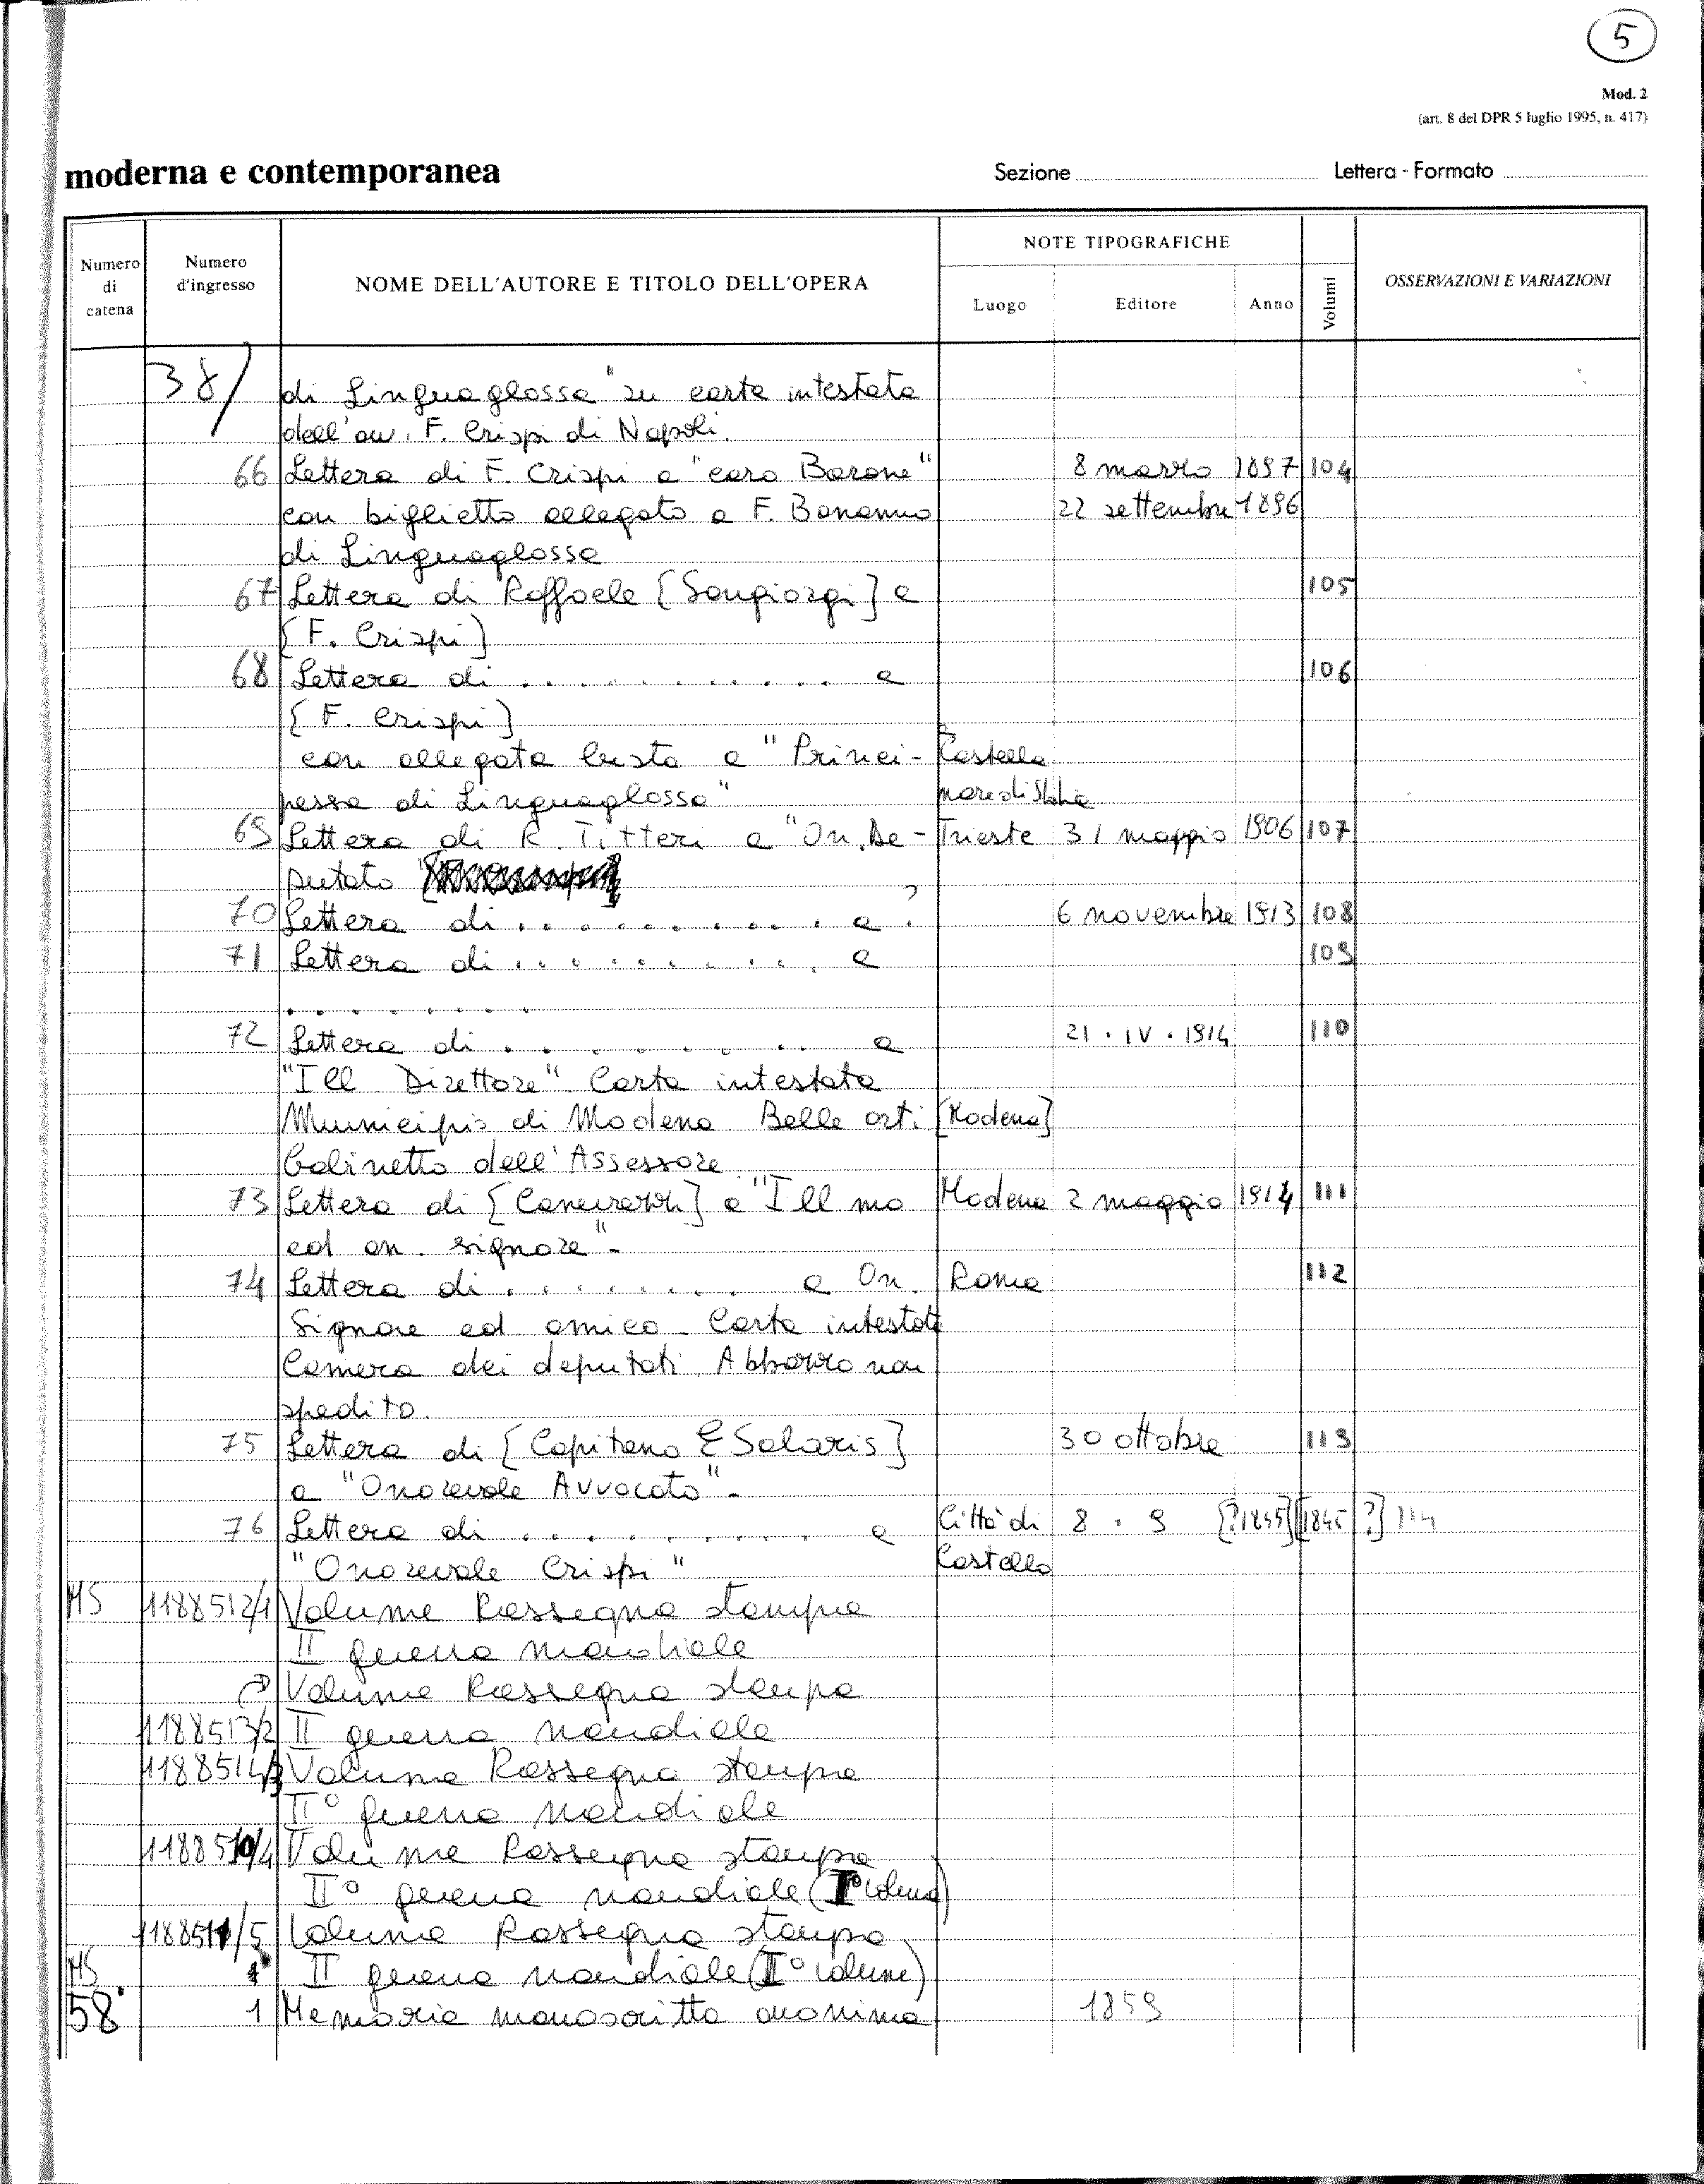 5
Mod. 2
(art. 8 del DPR 5 luglio 1995, n. 417)
moderna e contemporanea Sezione Lettera - Formato
Numero di catena Numero d'ingresso NOME DELL'AUTORE E TITOLO DELL'OPERA NOTE TIPOGRAFICHE Luogo Editore Anno Volumi OSSERVAZIONI E VARIAZIONI
38/ di Linguaglossa" su carta intestata
dell'avv. F. Crispi di Napoli.
66 Lettera di F. Crispi a "caro Barone" 8 marzo 1897 104
con biglietto allegato a F. Bonanno 22 settembre 1896
di Linguaglossa
67 Lettera di Raffaele [Sangiorgi] a 105
[F. Crispi]
68 Lettera di ............ a 106
[F. Crispi]
con allegata busta a "Princi- Castella
pessa di Linguaglossa" mare di Stabia
69 Lettera di R. Titteri a "On. De- Trieste 31 maggio 1906 107
putato
70 Lettera di ........... a ? 6 novembre 1913 108
71 Lettera di ........... a 109
........
72 Lettera di ........... a 21 . IV . 1914 110
"Ill Direttore" Carta intestata
Municipio di Modena Belle arti [Modena]
Gabinetto dell'Assessore
73 Lettera di [Canevazzi] a "Ill mo Modena 2 maggio 1914 111
ed on. signore" -
74 Lettera di ......... a On. Roma 112
Signore ed amico - Carta intestata
Camera dei deputati. Abbozzo non
spedito.
75 Lettera di [Capitano E Solaris] 30 ottobre 113
a "Onorevole Avvocato" -
76 Lettera di ........... a Città di 8 . 9 [?1895] [1845 ?] 114
"Onorevole Crispi" Castello
MS 1188512/1 Volume Rassegna stampa
II guerra mondiale
Volume Rassegna stampa
1188513/2 II guerra mondiale
1188514/3 Volume Rassegna stampa
II° guerra mondiale
1188510/4 Volume Rassegna stampa
II° guerra mondiale (I° volume)
1188511/5 Volume Rassegna stampa
MS II guerra mondiale (II° volume)
58 1 Memoria manoscritta anonima 1859